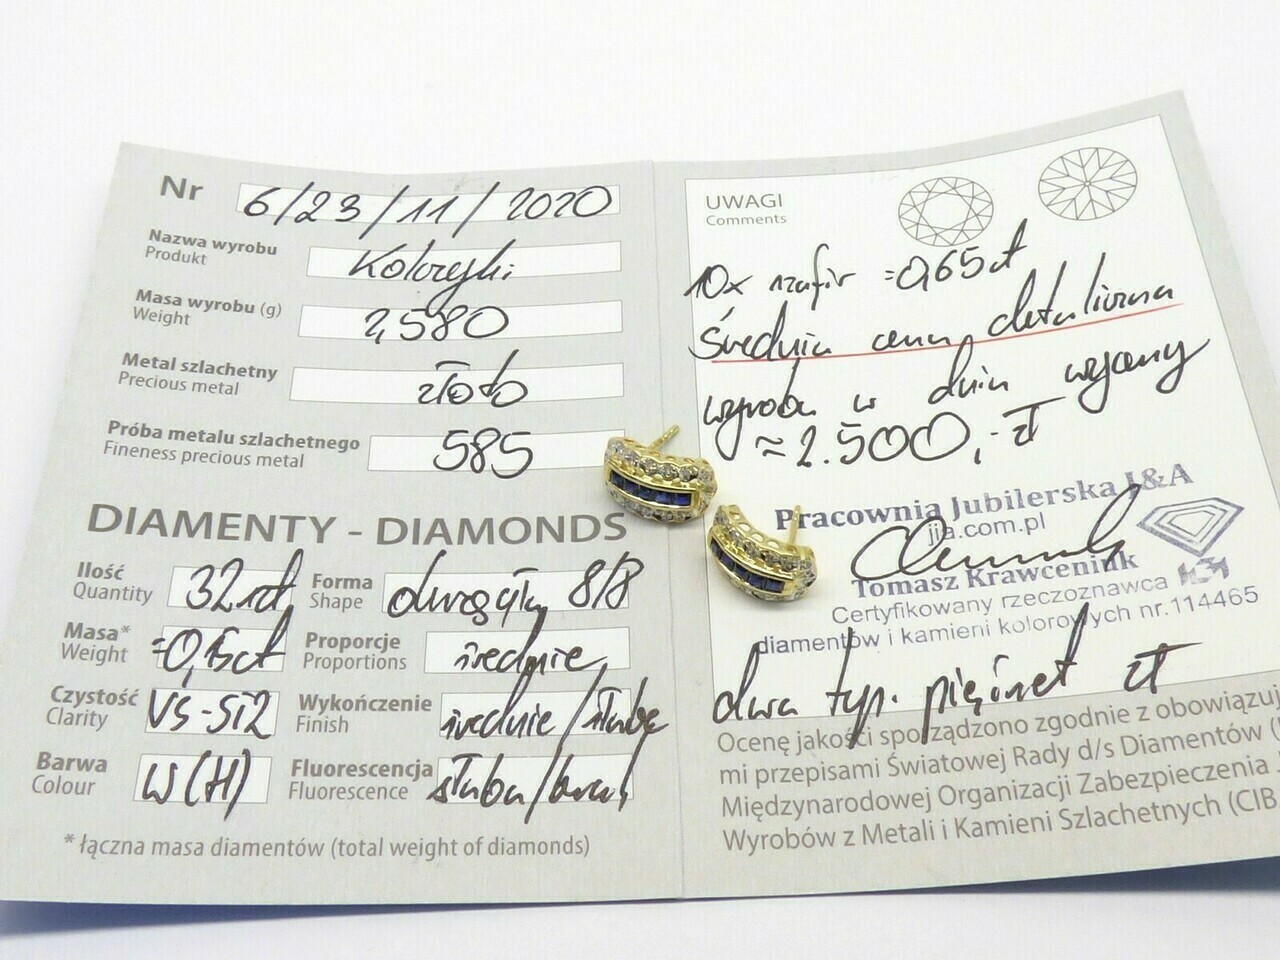 Nr 6/23/11/2020
Nazwa wyrobu
Produkt
Kolczyki
Masa wyrobu (g)
Weight
2,580
Metal szlachetny
Precious metal
złoto
Próba metalu szlachetnego
Fineness precious metal
585
DIAMENTY - DIAMONDS
Ilość
Quantity
32szt
Forma
Shape
okrągły 8/8
Masa*
Weight
=0,15ct
Proporcje
Proportions
średnie
Czystość
Clarity
VS-SI2
Wykończenie
Finish
średnie/słabe
Barwa
Colour
W(H)
Fluorescencja
Fluorescence
słaba/brak
* łączna masa diamentów (total weight of diamonds)
UWAGI
Comments
10x szafir =0,65ct
Średnia cena detaliczna
wyrobu w dniu wyceny
≈2.500,-zł
Pracownia Jubilerska J&A
jja.com.pl
Tomasz Krawceniuk
Certyfikowany rzeczoznawca
diamentów i kamieni kolorowych nr.114465
dwa tys. pięćset zł
Ocenę jakości sporządzono zgodnie z obowiązuj
mi przepisami Światowej Rady d/s Diamentów (
Międzynarodowej Organizacji Zabezpieczenia
Wyrobów z Metali i Kamieni Szlachetnych (CIB